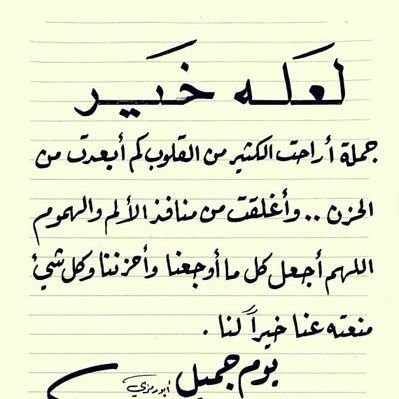 لعله خير
جملة أراحت الكثير من القلوب كم أبعدت من
الحزن .. وأغلقت من منافذ الألم والهموم
اللهم أجعل كل ما أوجعنا وأحزننا وكل شيء
منعته عنا خيراً لنا .
يوم جميل
أبورمزي